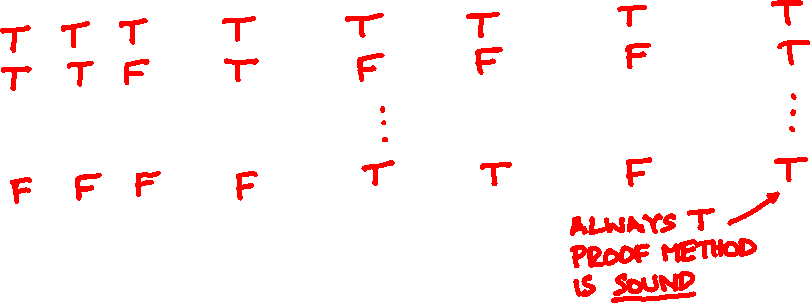 T T T T T T T T
T T F T F F F T
⋮ ⋮
F F F F T T F T
ALWAYS T
PROOF METHOD
IS SOUND